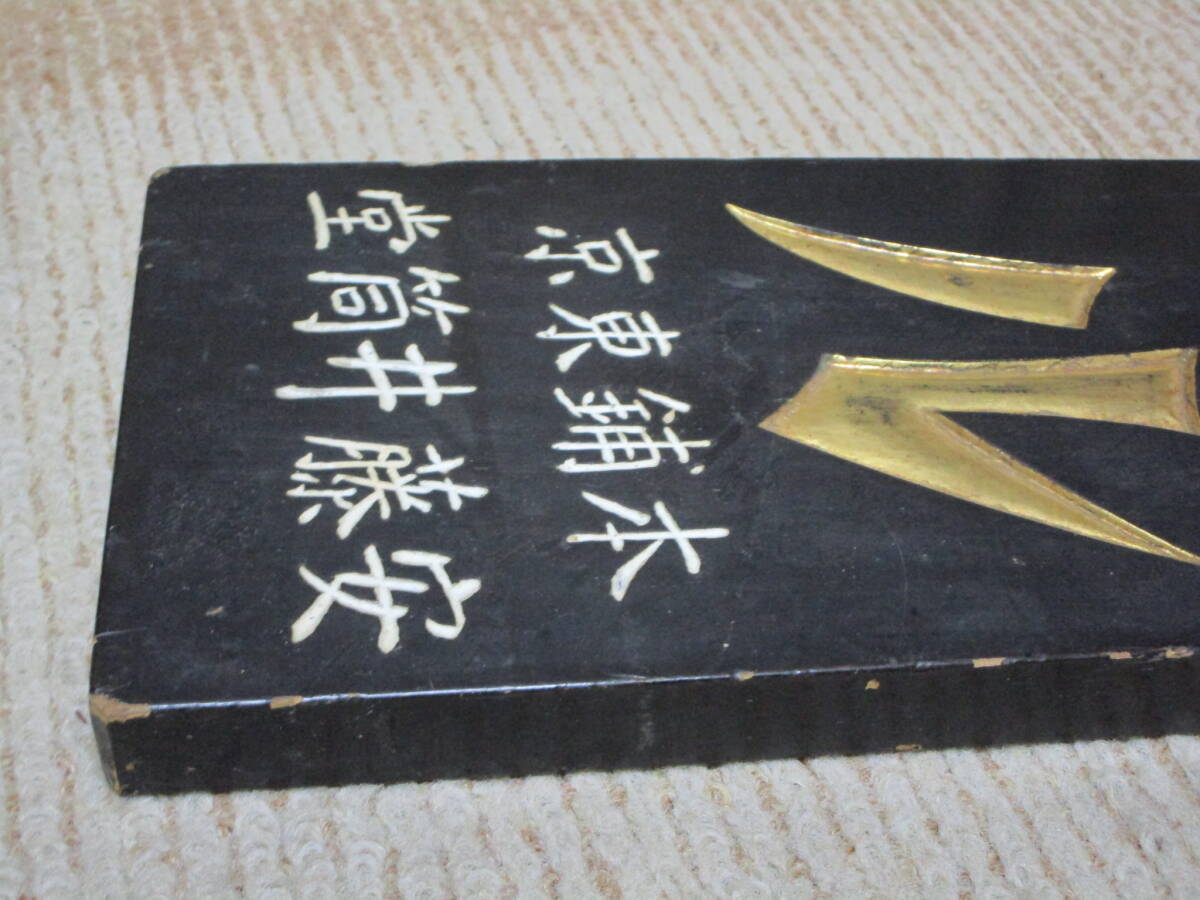 本鋪東京
安藤井筒堂